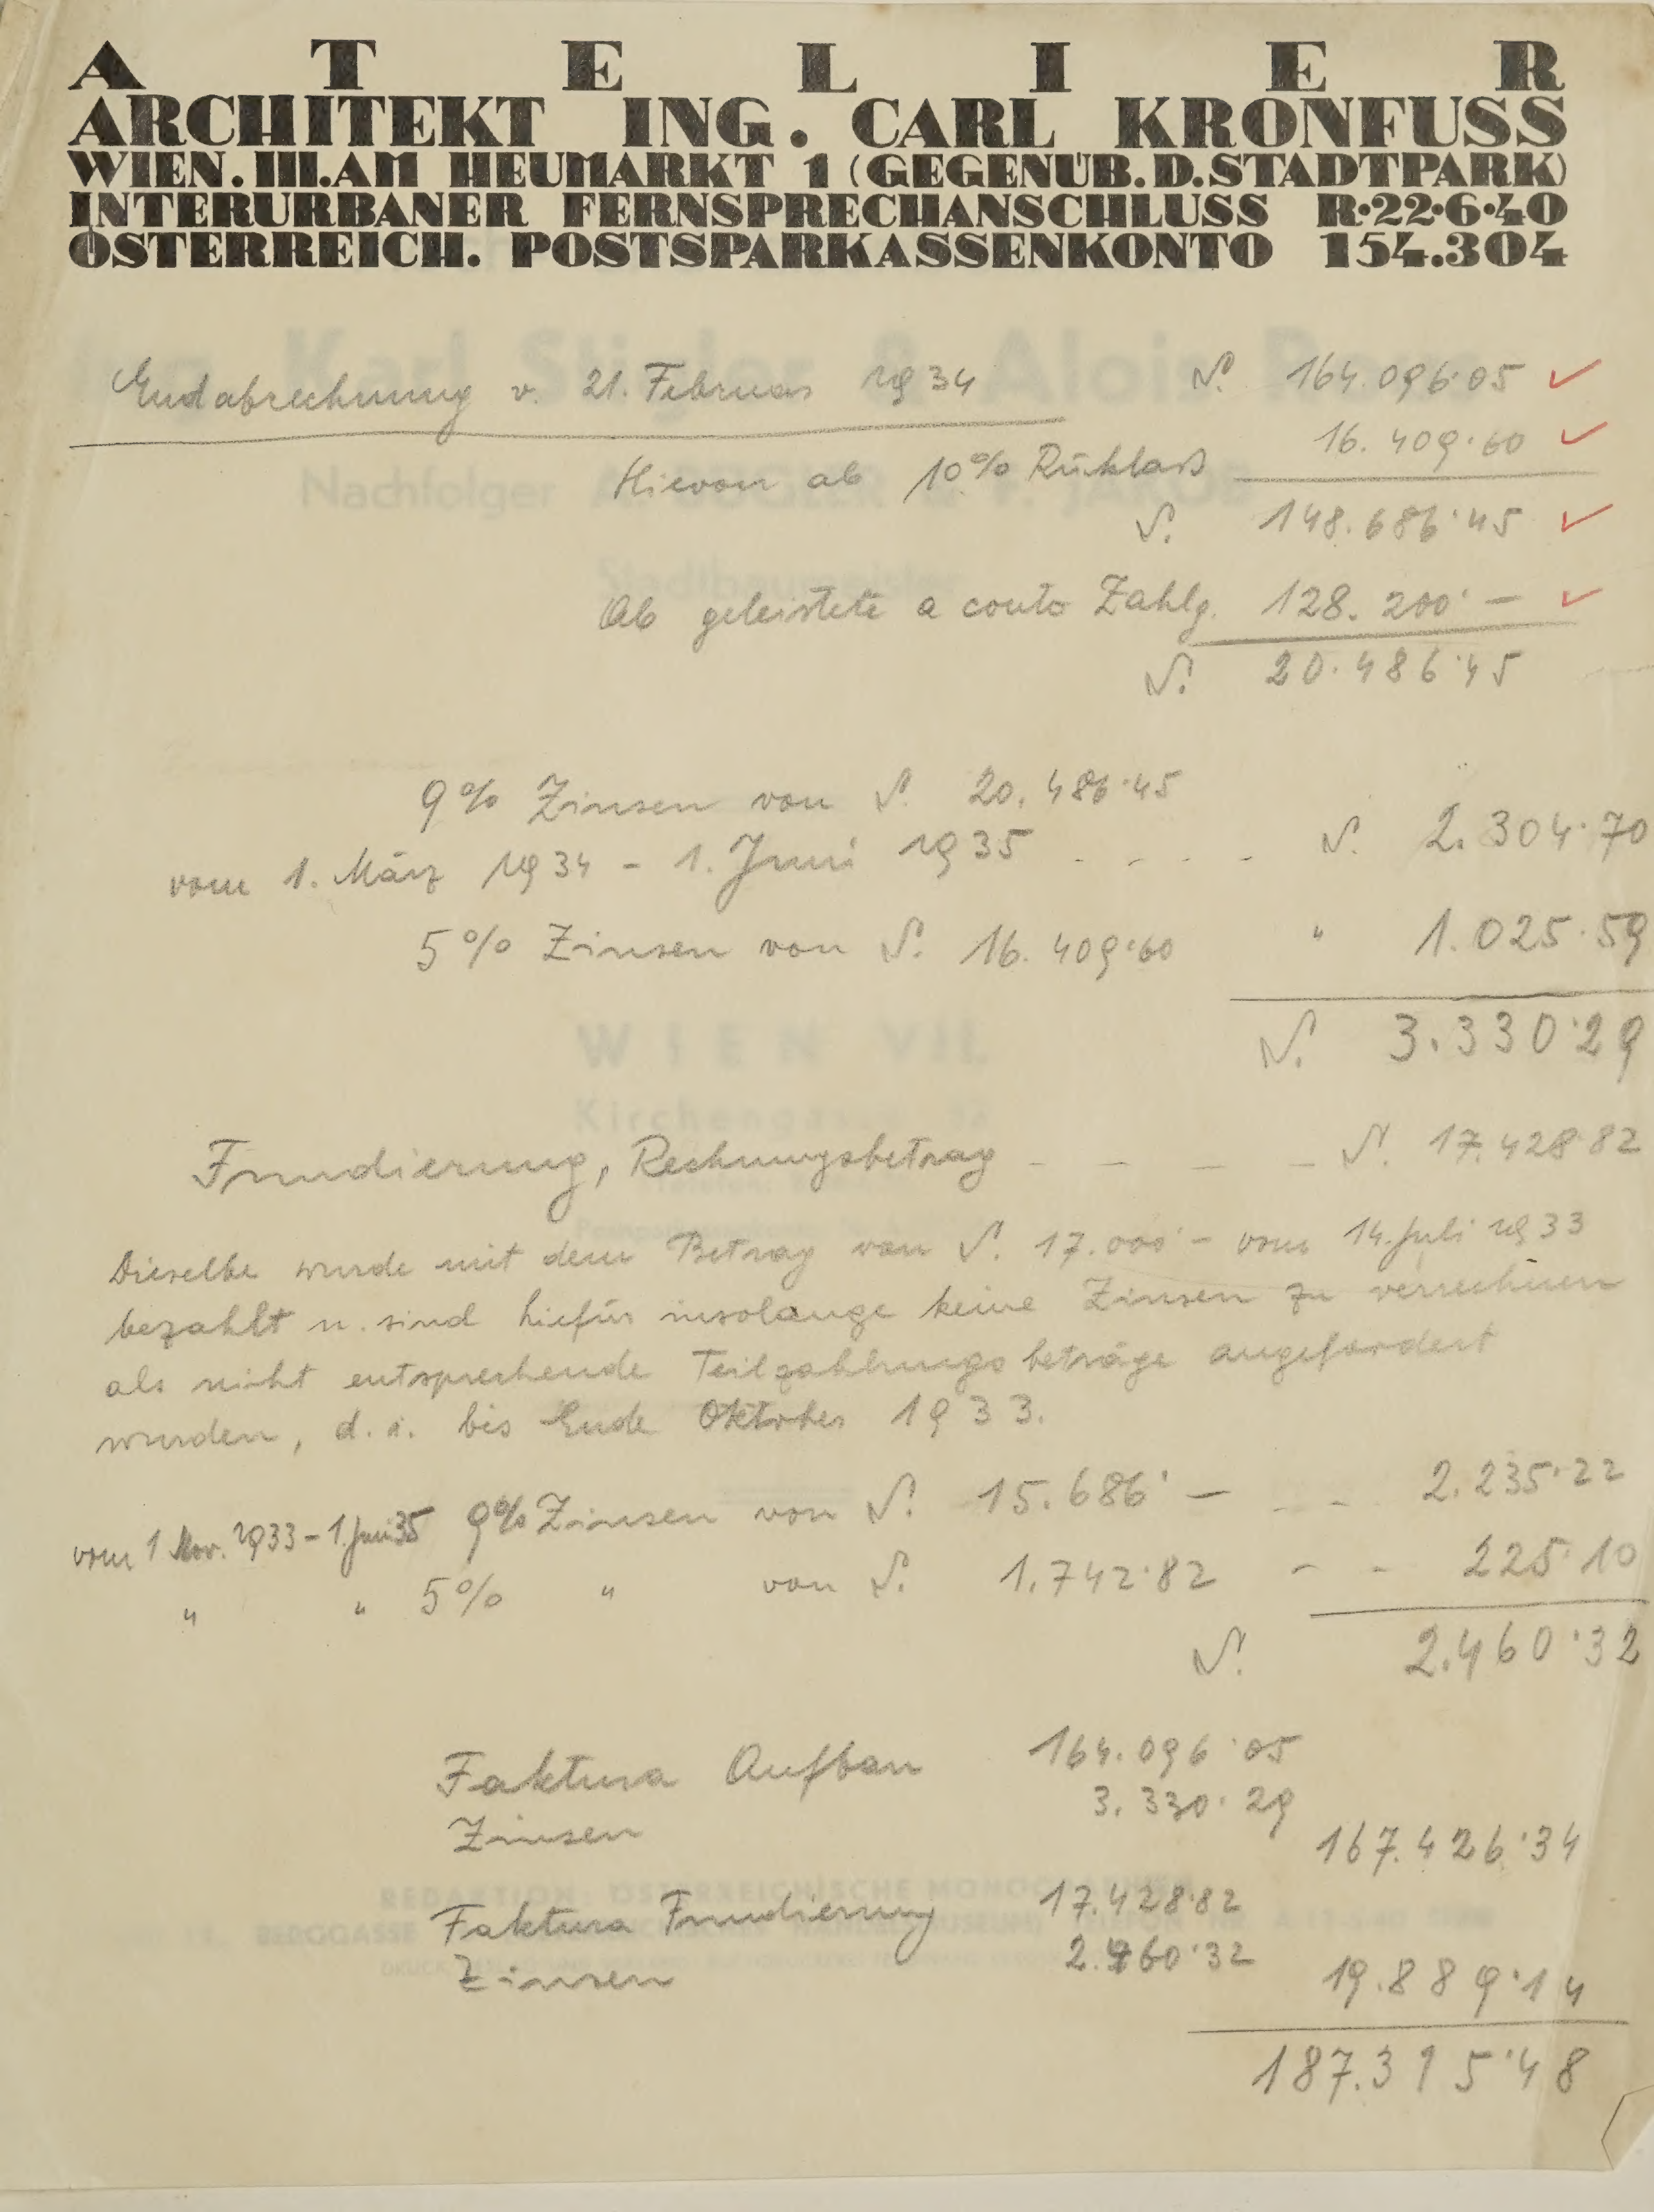 ATELIER
ARCHITEKT ING. CARL KRONFUSS
WIEN. III. AM HEUMARKT 1 (GEGENÜB. D. STADTPARK)
INTERURBANER FERNSPRECHANSCHLUSS R·22·6·40
ÖSTERREICH. POSTSPARKASSENKONTO 154.304
Endabrechnung v. 21. Februar 1934 S. 164.096·05
Hievon ab 10% Rücklaß 16.409·60
S. 148.686·45
Ab geleistete a conto Zahlg. 128.200·—
S. 20.486·45
9% Zinsen von S. 20.486·45
vom 1. März 1934 - 1. Juni 1935 - - - - S. 2.304·70
5% Zinsen von S. 16.409·60 " 1.025·59
S. 3.330·29
Fundierung, Rechnungsbetrag - - - - S. 17.428·82
Dieselbe wurde mit dem Betrag von S. 17.000·- vom 14. Juli 1933
bezahlt u. sind hiefür insolange keine Zinsen zu verrechnen
als nicht entsprechende Teilzahlungsbeträge angefordert
wurden, d. i. bis Ende Oktober 1933.
vom 1 Nov. 1933 - 1. Juni 35 9% Zinsen von S. 15.686·— - 2.235·22
" " 5% " von S. 1.742·82 - - 225·10
S. 2.460·32
Faktura Aufbau 164.096·05
Zinsen 3.330·29
167.426·34
Faktura Fundierung 17.428·82
Zinsen 2.460·32
19.889·14
187.315·48